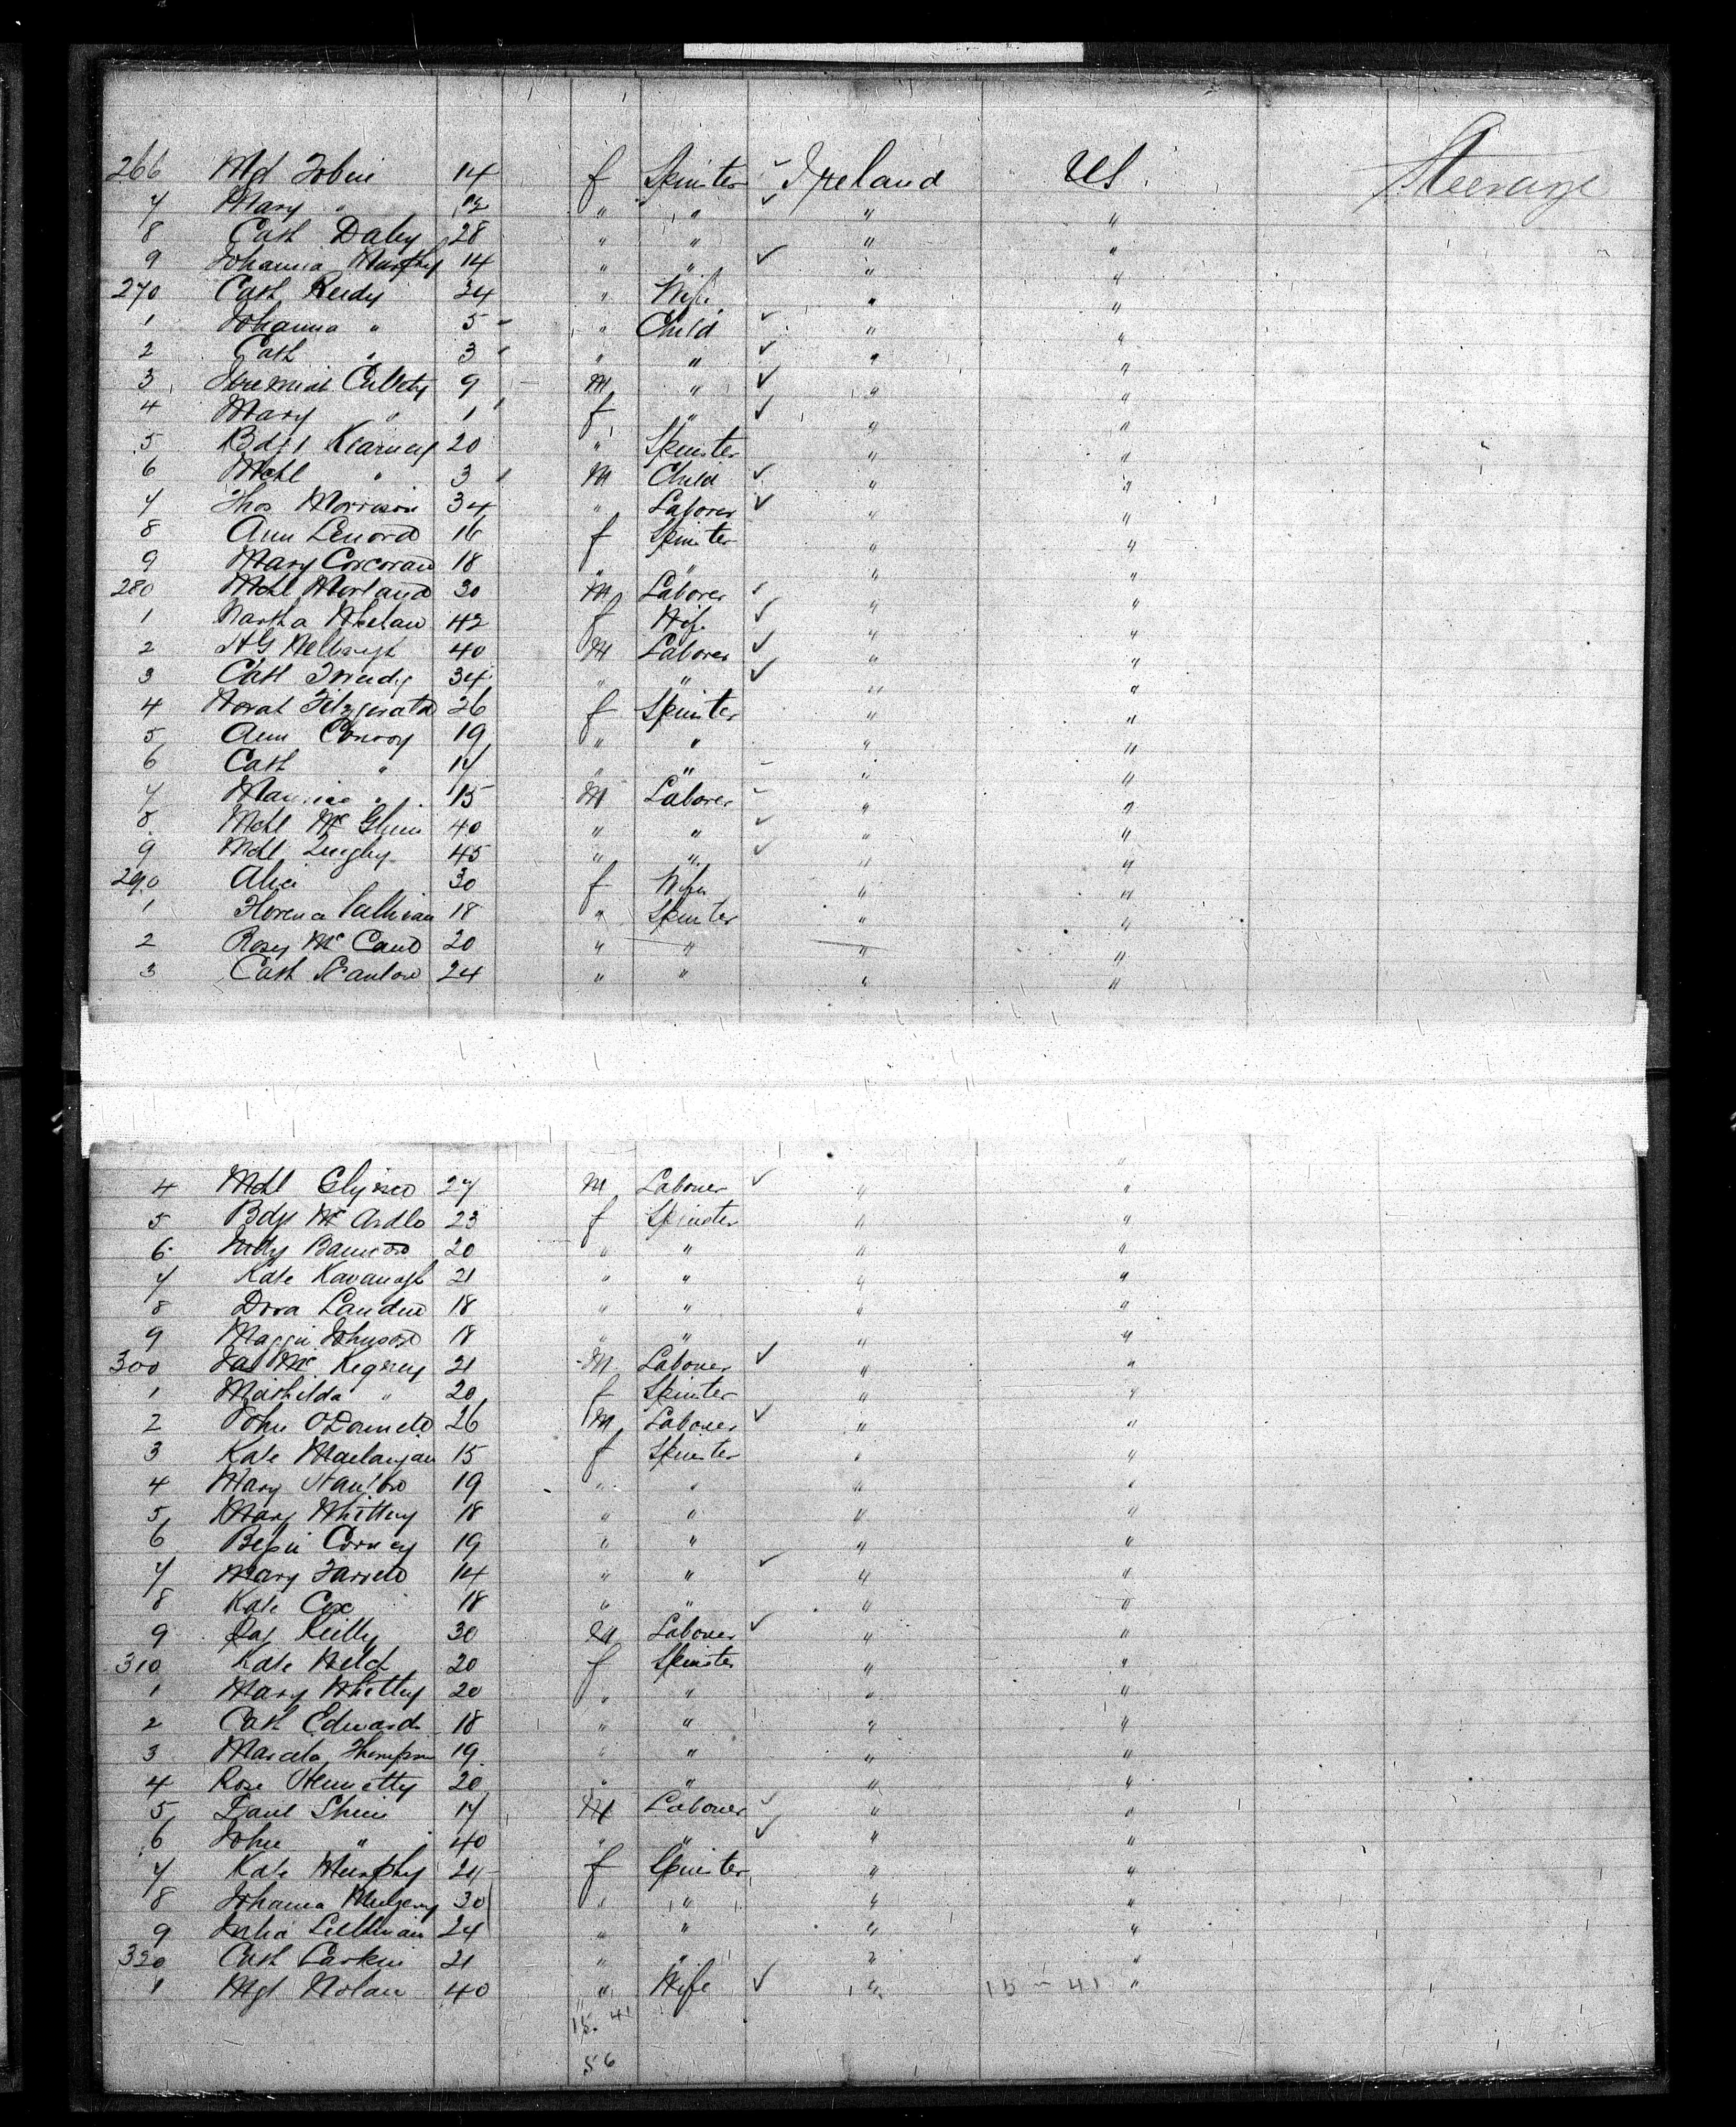 266 Mgt Tobin 14 f Spinster Ireland US. Steerage
7 Mary " 12 " " " "
8 Cath Daley 28 " " " "
9 Johanna Murphy 14 " " " "
270 Cath Reidy 24 " Wife " "
1 Johanna " 5 " Child " "
2 Cath " 3 " " " "
3 Jeremiah 9 M " " "
4 Mary " 1 f " " "
5 Bdgt Kearney 20 " Spinster " "
6 Mchl " 3 M Child " "
7 Thos Morrison 34 " Laborer " "
8 Ann Lenord 16 f Spinster " "
9 Mary Corcoran 18 " " " "
280 Mchl Morland 30 M Laborer " "
1 Martha Whelan 42 f Wife " "
2 40 M Laborer " "
3 Cath 34 " " " "
4 Norah Fitzgerald 26 f Spinster " "
5 Ann Conroy 19 " " " "
6 Cath " 17 " " " "
7 Maurice " 15 M Laborer " "
8 Mchl Mc Glynn 40 " " " "
9 Mchl Quigley 45 " " " "
290 Alice 30 f Wife " "
1 Florence Sullivan 18 " Spinster " "
2 Rosey Mc Cann 20 " " " "
3 Cath Scanlon 24 " " " "
4 Mchl Glynn 27 M Labourer " "
5 Bdgt Mc Ardle 23 f Spinster " "
6 Judy Bannon 20 " " " "
7 Kate Kavanagh 21 " " " "
8 Dora 18 " " " "
9 Maggie Johnson 18 " " " "
300 Jas Mc 21 M Labouer " "
1 Mathilda " 20 f Spinster " "
2 John O'Donnell 26 M Labouer " "
3 Kate 15 f Spinster " "
4 Mary Hanlon 19 " " " "
5 Mary Whittey 18 " " " "
6 Bessie 19 " " " "
7 Mary Farrell 14 " " " "
8 Kate Cox 18 " " " "
9 Reilly 30 M Labouer " "
310 Kate Welch 20 f Spinster " "
1 Mary Whittey 20 " " " "
2 Cath Edwards 18 " " " "
3 Marcela Thompson 19 " " " "
4 Rose 20 " " " "
5 Danl Shine 17 M Labouer " "
6 John " 40 " " " "
7 Kate Murphy 24 f Spinster " "
8 Johanna 30 " " " "
9 Julia Sullivan 24 " " " "
320 Cath Larkin 21 " " " "
1 Mgt Nolan 40 " Wife " 15 - 41 "
15. 41
56